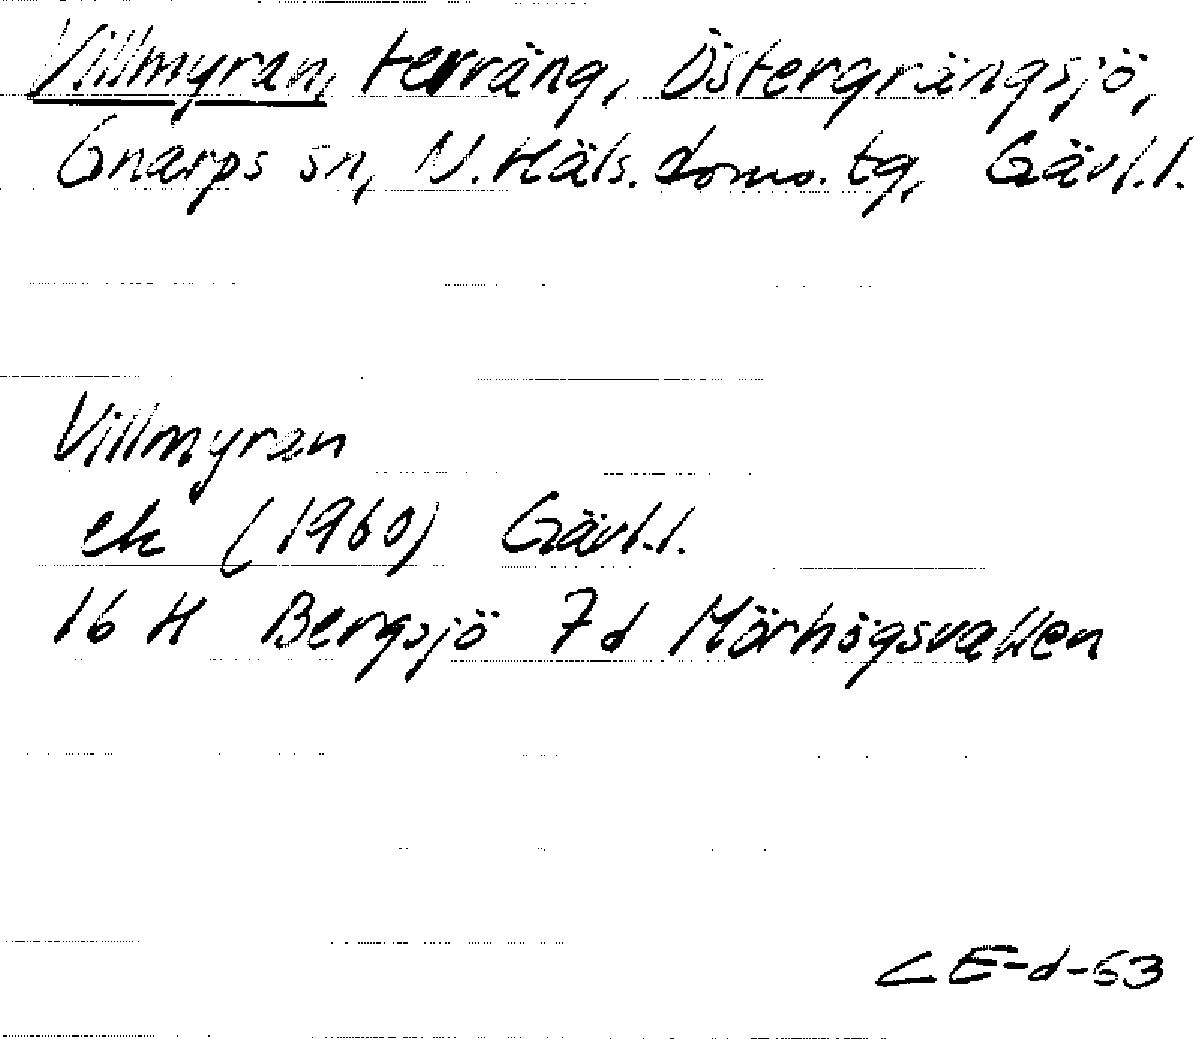 Villmyran, terräng, Östergrängsjö,
Gnarps sn, N. Häls. doms. tg, Gävl.l.
Villmyran
ek (1960) Gävl.l.
16 H Bergsjö 7d Mörhögsvallen
LE-d-63